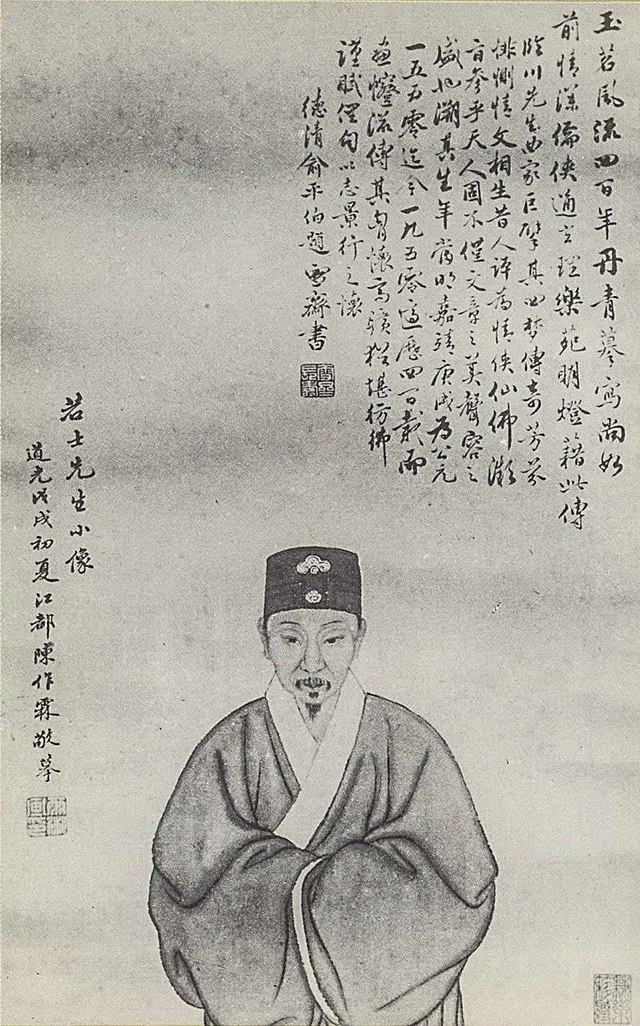 玉茗風流四百年丹青摹寫尚如
前情深儒俠通玄理樂苑明燈藉此傳
臨川先生曲家巨擘其四夢傳奇芳芬
悱惻情文相生昔人評為情俠仙佛漸
盲參乎天人固不僅文章之美聲容之
盛也溯其生年當明嘉靖庚戌為公元
一五五零迄今一九五零適歷四百載而
畫幰流傳其胷懷高曠猶堪彷彿
謹賦俚句以志景行之懷
德清俞平伯題雪齋書
若士先生小像
道光戊戌初夏江都陳作霖敬摹